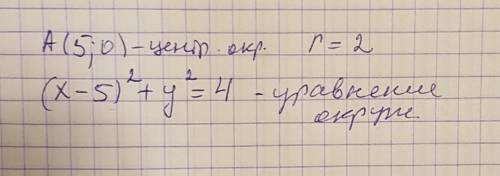 A(5;0) – центр. окр. r = 2
(x – 5)² + y² = 4 – уравнение
окруж.